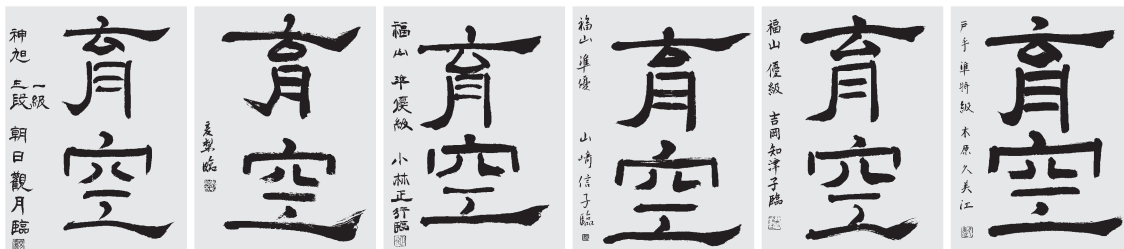 育空
神旭 三段 一級 朝日觀月臨
育空
育空
福山 準優級 小林正行臨
育空
福山 準優 山崎信子臨
育空
福山 優級 吉岡知津子臨
育空
戸手 準特級 木原久美江